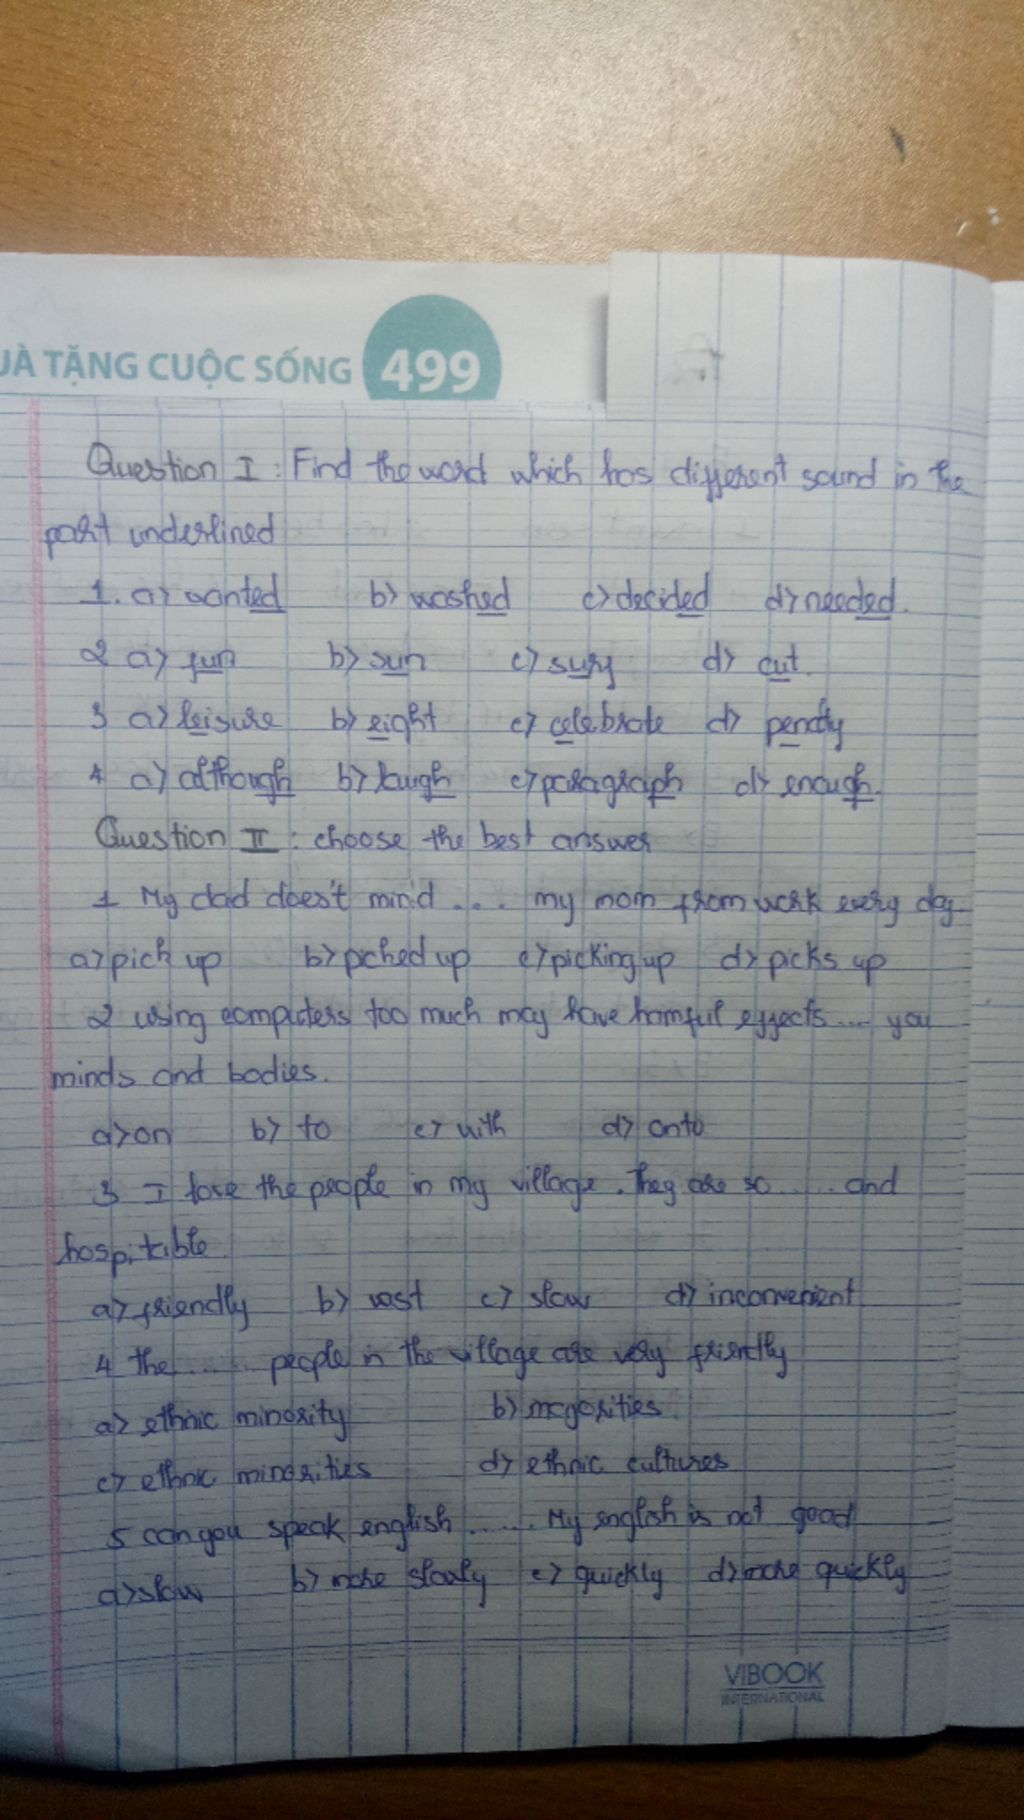 UÀ TẶNG CUỘC SỐNG 499
Question I : Find the word which has different sound in the
part underlined
1. a) wanted b) washed c) decided d) needed.
2 a) fun b) sun c) sury d) cut.
3 a) leisure b) eight c) celebrate d) pendy
4 a) although b) laugh c) paragraph d) enough.
Question II : choose the best answer
1 My dad does't mind .... my mom from work every day
a) pick up b) piched up c) picking up d) picks up
2 using computers too much may have hamful effects .... you
minds and bodies.
a) on b) to c) with d) onto
3 I love the people in my village. They are so ..... and
hospitable.
a) friendly b) vast c) slow d) inconvenient
4 the ....... people in the village are very friendly
a) ethnic minority b) magorities.
c) ethnic minorities d) ethnic cultures
5 can you speak english ....... My english is not good
a) slow b) more slowly c) quickly d) more quickly
VIBOOK
INTERNATIONAL